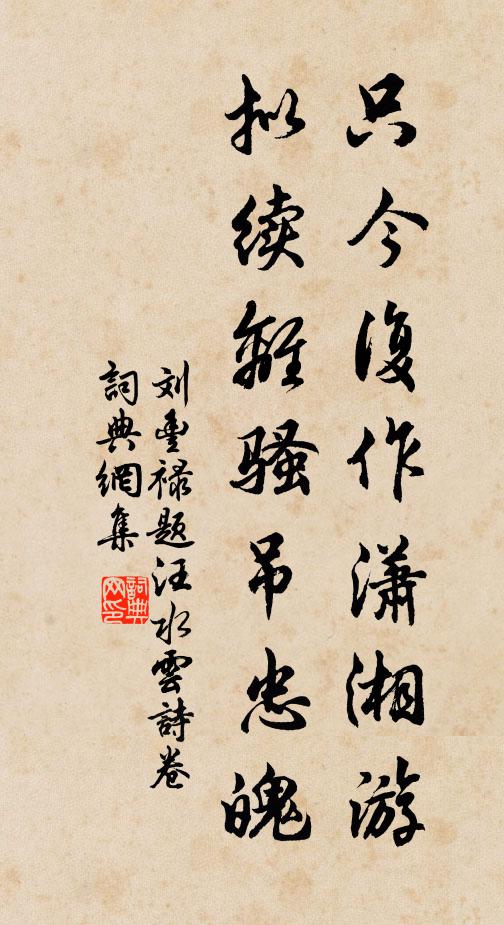 只今復作潇湘游
拟续離骚吊忠魄
刘豊禄题汪水雲詩卷
詞典網集
詞典网印